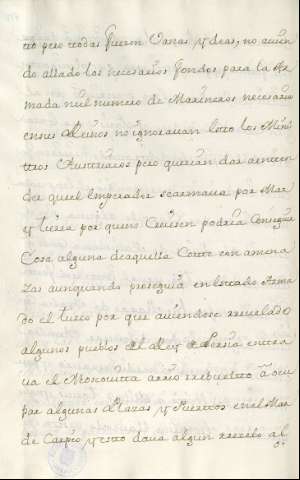 tro pero todas fueron Vanas Ydeas, no avien
do allado los necesarios fondos para la Ar
mada ni el numero de Marineros necesario
en sus no ignoravan esto los Minis
tros pero querian dar a enten
der que el Emperador se armava por Mar
y tierra por que no Creiesen podria Conseguir
Cosa alguna de aquella Corte con amena
zas aun quando proseguia en Estado Arma
do el turco por que aviendose revelado
algunos pueblos del Rey de Persia entra
va el Moscovita resuelto a ocu
par algunas Plazas y Puertos en el Mar
de Caspio y esto dava algun rezelo al